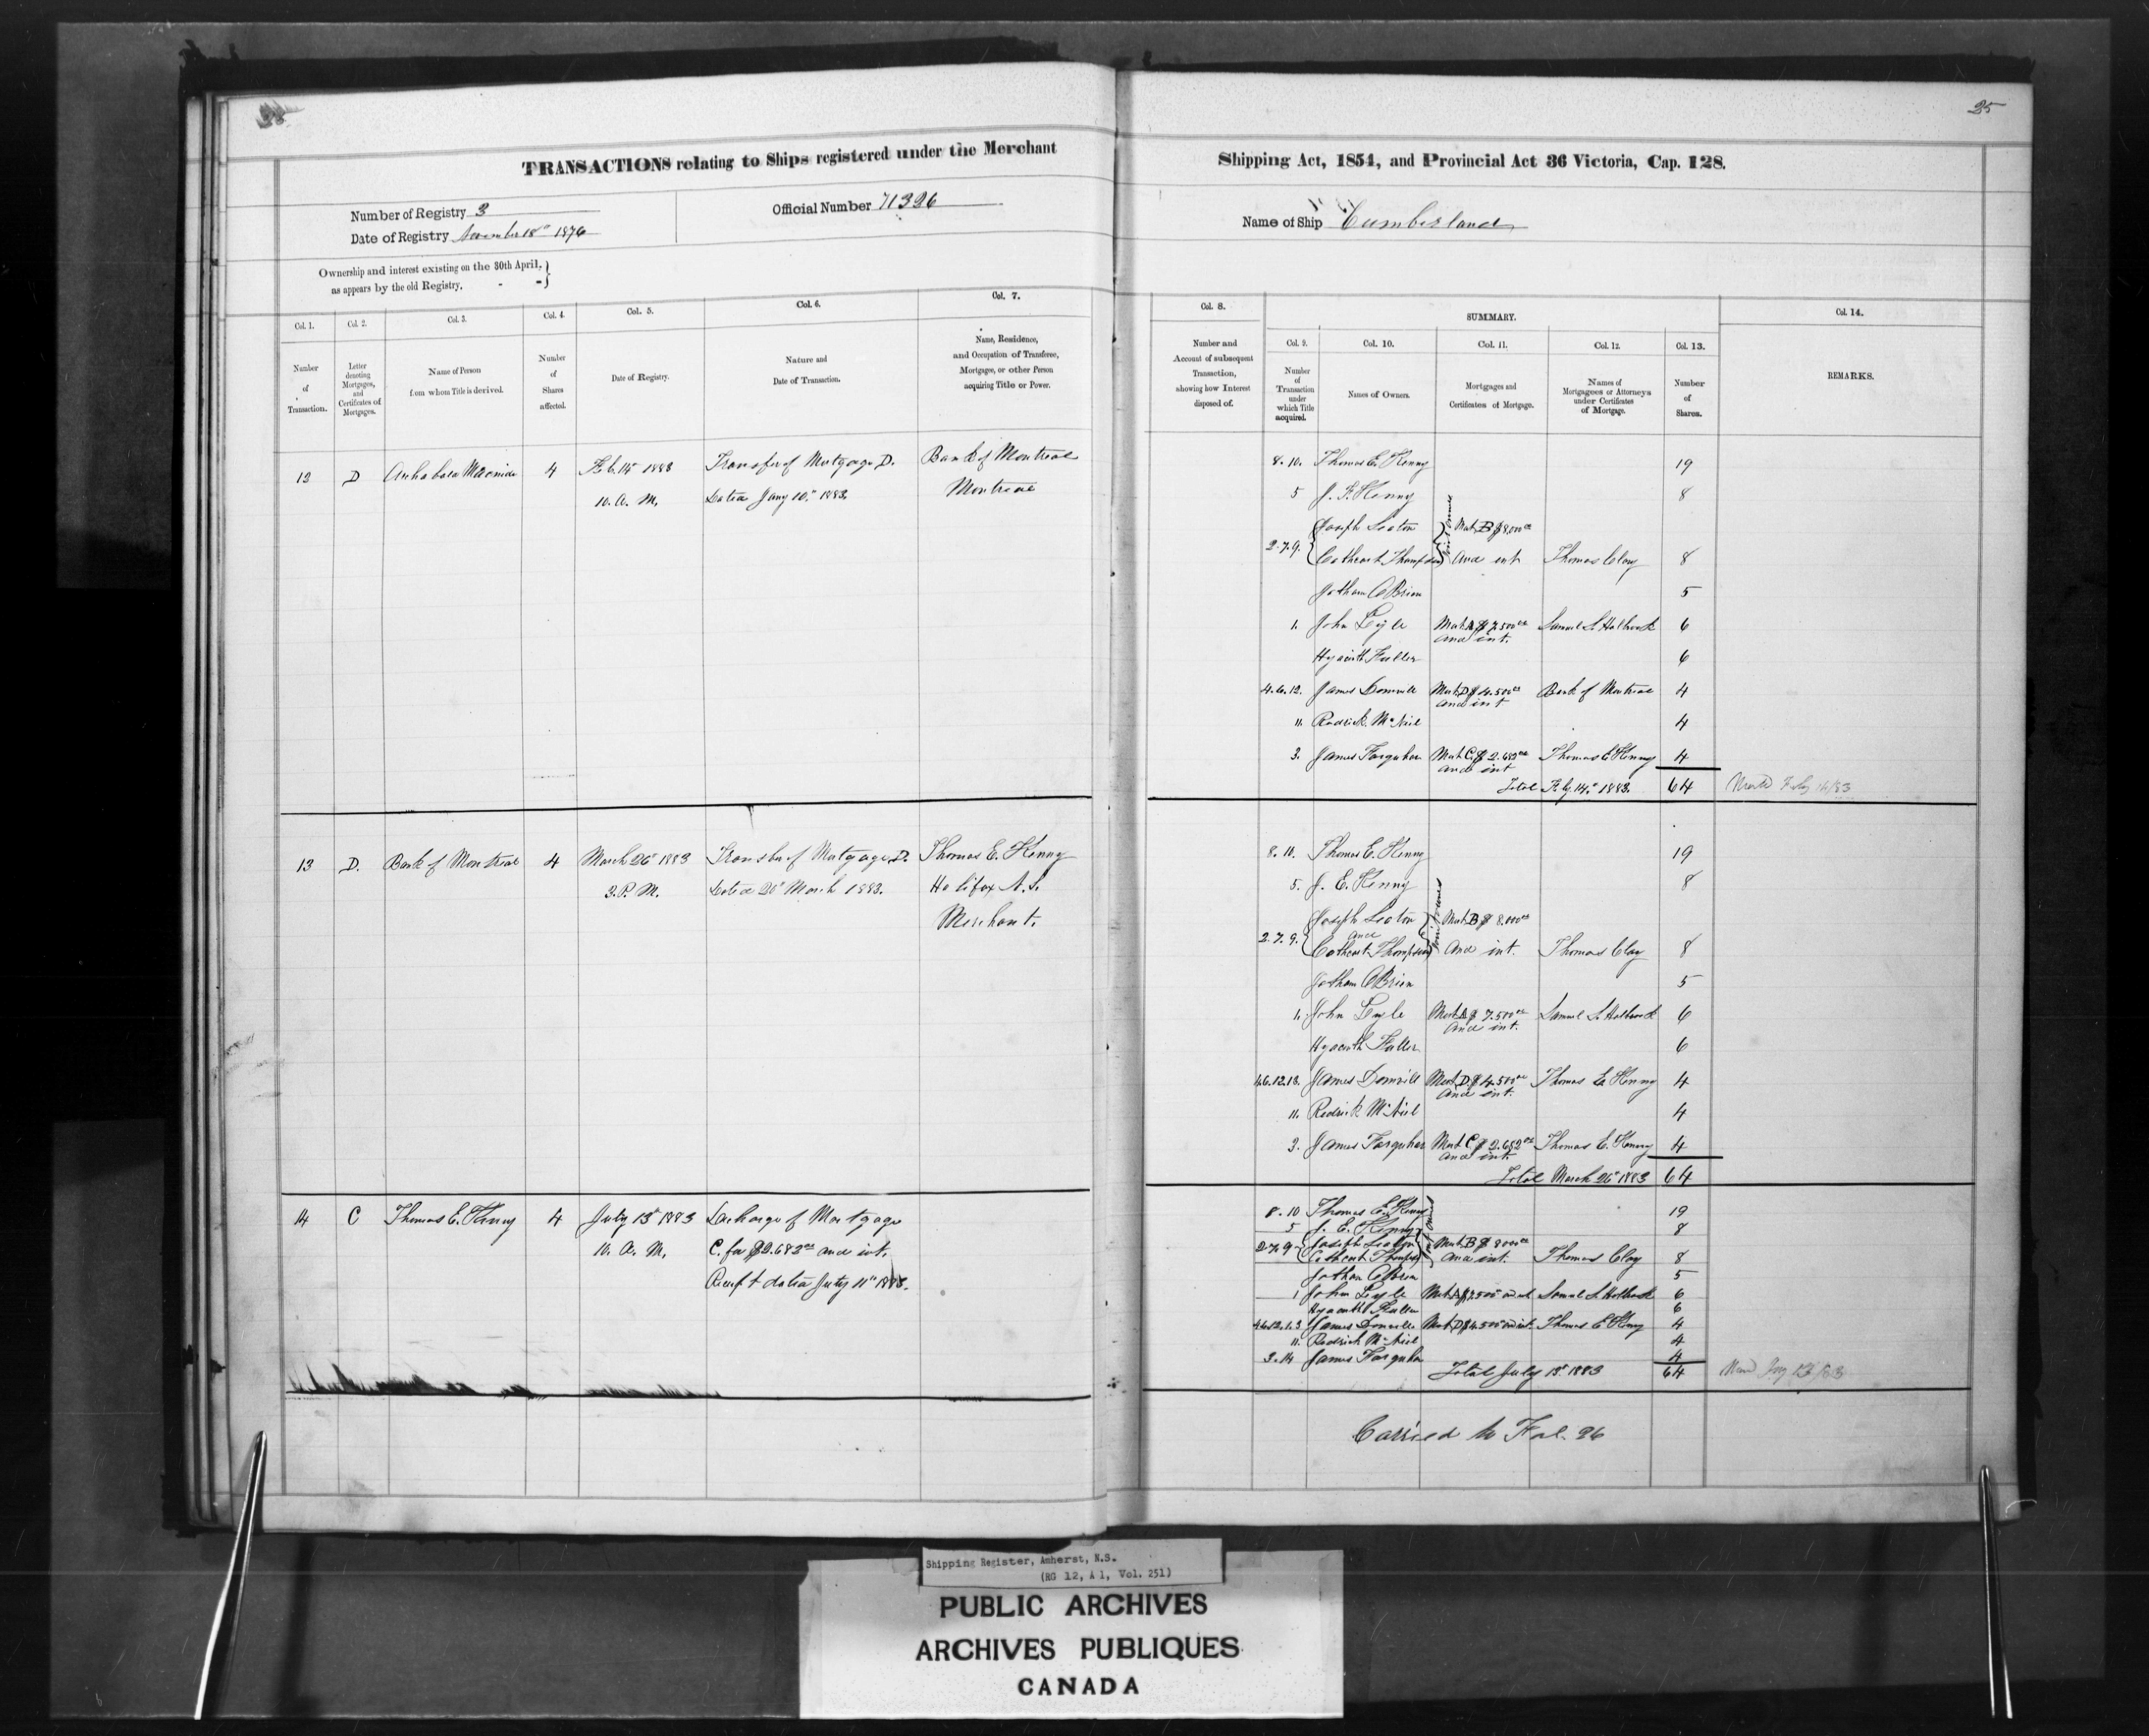 25
TRANSACTIONS relating to Ships registered under the Merchant
Shipping Act, 1854, and Provincial Act 36 Victoria, Cap. 128.
Number of Registry 3
Date of Registry November 18th 1876
Official Number 71326
Name of Ship Cumberland
Ownership and interest existing on the 30th April,
as appears by the old Registry.
Col. 1.
Number
of
Transaction.
Col. 2.
Letter
denoting
Mortgages,
and
Certificates of
Mortgages.
Col. 3.
Name of Person
from whom Title is derived.
Col. 4.
Number
of
Shares
affected.
Col. 5.
Date of Registry.
Col. 6.
Nature and
Date of Transaction.
Col. 7.
Name, Residence,
and Occupation of Transferee,
Mortgagee, or other Person
acquiring Title or Power.
Col. 8.
Number and
Account of subsequent
Transaction,
showing how Interest
disposed of.
SUMMARY.
Col. 9.
Number
of
Transaction
under
which Title
acquired.
Col. 10.
Names of Owners.
Col. 11.
Mortgages and
Certificates of Mortgage.
Col. 12.
Names of
Mortgagees or Attorneys
under Certificates
of Mortgage.
Col. 13.
Number
of
Shares.
Col. 14.
REMARKS.
12 D 4 Feb. 14 1883 Transfer of Mortgage D. Bank of Montreal
10. A. M. Dated Jany 10th 1883. Montreal
8. 10. Thomas E. Kenny 19
5 J. F. Kenny 8
Joseph Seaton Mort. B $8,000 00
2. 7. 9. Cathcart Thompson And int Thomas Clay 8
Jotham O'Brien 5
1. John Lyle Mort. A $7.500 00 Samuel S. Holbrook 6
and int.
Hyacinth Fuller 6
4. 6. 12. James Domvill Mort. D $4.500 00 Bank of Montreal 4
and int
11. Rodrick McNeil 4
3. James Farquhar Mort C. $2.682 00 Thomas E Kenny 4
and int
Total Feby. 14th 1883. 64
13 D. Bank of Montreal 4 March 26th 1883 Transfer of Mortgage D. Thomas E. Kenny
3. P. M. Dated 20th March 1883. Halifax N. S.
Merchant.
8. 10. Thomas E. Kenny 19
5. J. E. Kenny 8
Joseph Seaton Mort. B $8.000 00
and
2. 7. 9. Cathcart Thompson And int. Thomas Clay 8
Jotham O'Brien 5
1. John Lyle Mort. A $7.500 00 Samuel S. Holbrook 6
And int.
Hyacinth Fuller 6
4.6.12.13. James Domvill Mort. D. $4.500 00 Thomas E. Kenny 4
And int.
11. Rodrick McNeil 4
3. James Farquhar Mort C $2.682 00 Thomas E. Kenny 4
and int.
Total March 26th 1883 64
14 C Thomas E. Kenny 4 July 13th 1883 Discharge of Mortgage
10. A. M. C. for $2.682 00 and int.
Receipt dated July 11th 1883.
8. 10 Thomas E. Kenny 19
5 J. E. Kenny 8
2. 7. 9 Joseph Seaton Mort. B $8000 00
Cathcart Thompson And int. Thomas Clay 8
Jotham O'Brien 5
1 John Lyle Mort. A $7.500 and int Samuel S. Holbrook 6
Hyacinth Fuller 6
4.6.12.13 James Domville Mort. D $4.500 and int. Thomas E Kenny 4
11. Rodrick McNeil 4
3. 14 James Farquhar 4
Total July 13th 1883 64
Carried to Fol. 26
Shipping Register, Amherst, N.S.
(RG 12, A 1, Vol. 251)
PUBLIC ARCHIVES
ARCHIVES PUBLIQUES
CANADA